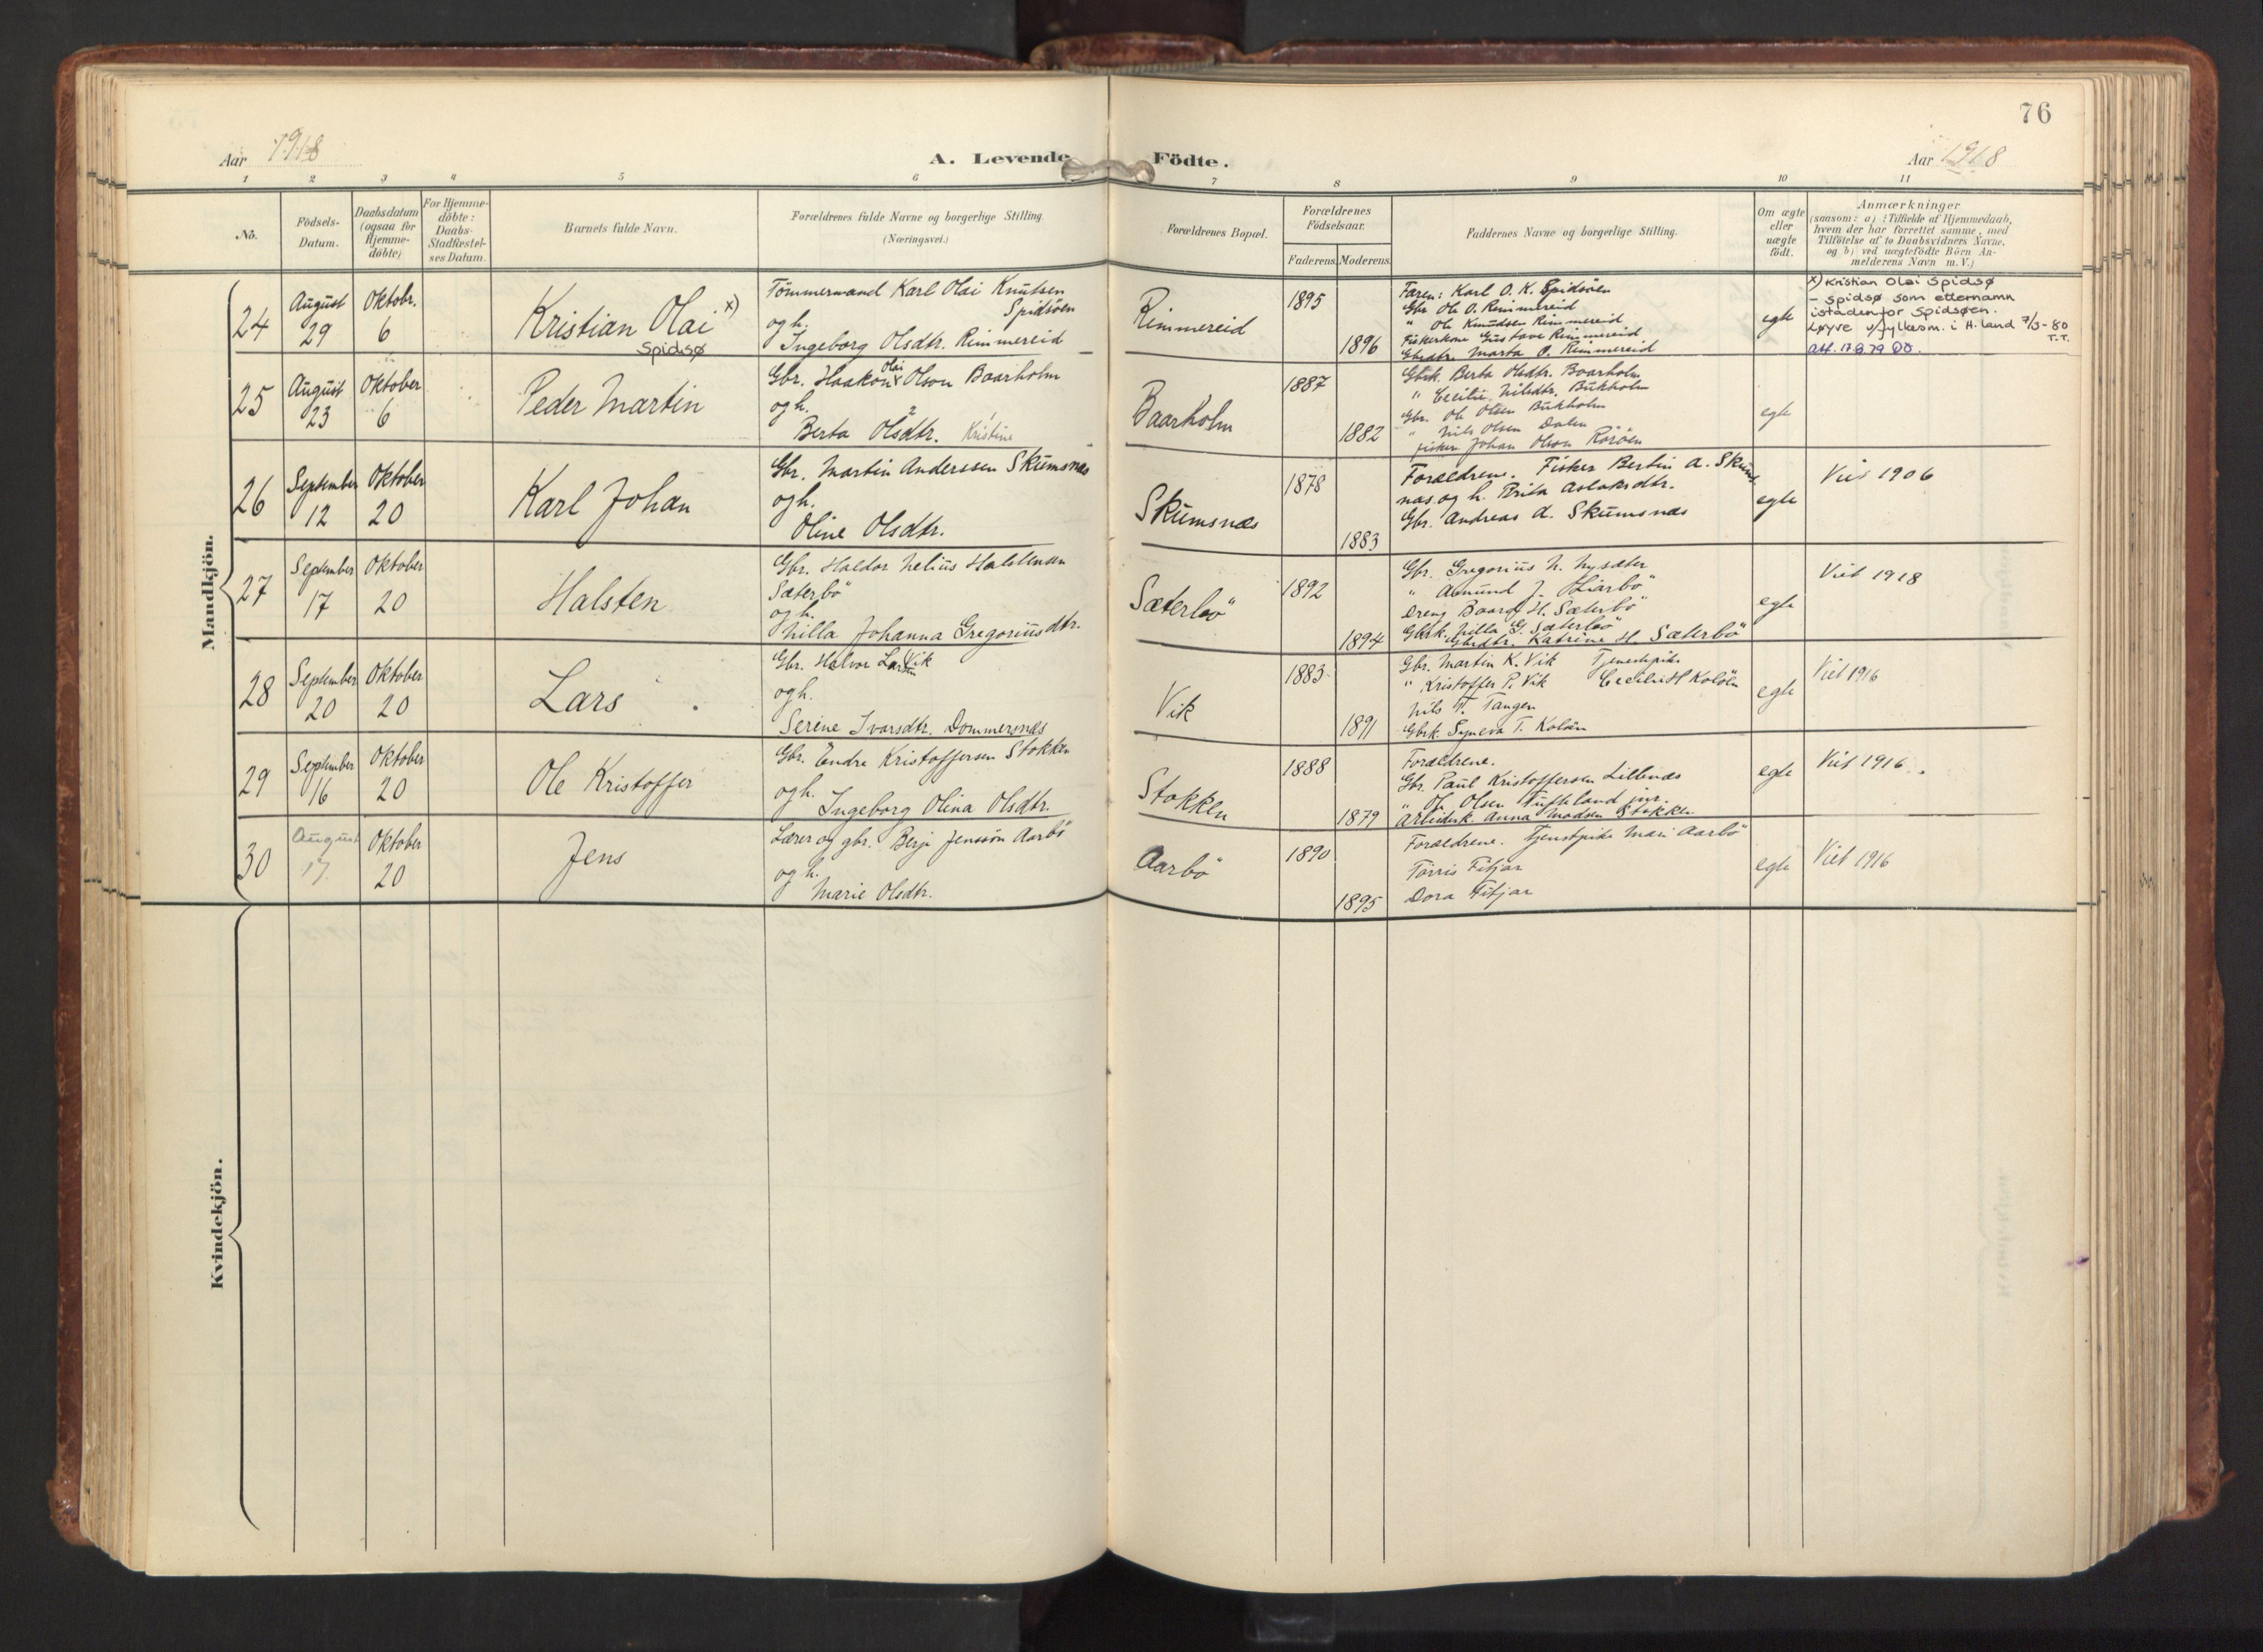 76
Aar 1918
A. Levende Födte.
Aar 1918
1 2 3 4 5 6 7 8 9 10 11
No.
Födsels-
Datum.
Daabsdatum
(ogsaa for
Hjemme-
döbte)
For Hjemme-
döbte:
Daabs-
Stadfæstel-
ses Datum.
Barnets fulde Navn.
Forældrenes fulde Navne og borgerlige Stilling.
(Næringsvei.)
Forældrenes Bopæl.
Forældrenes
Födselsaar.
Faderens. Moderens.
Faddernes Navne og borgerlige Stilling.
Om ægte
eller
uægte
födt.
Anmærkninger
(saasom: a) i Tilfælde af Hjemmedaab,
hvem der har forrettet samme, med
Tilföielse af to Daabsvidners Navne,
og b) ved uægtefödte Börn An-
melderens Navn m. V.)
Mandkjön.
24
August
29
Oktobr.
6
Kristian Olai x)
Spidsø
Tömmermand Karl Olai Knutsen
Spidsöen
og h.
Ingeborg Olsdtr. Rimmereid
Rimmereid
1895
1896
Faren: Karl O. K. Spidsöen
Gbr. Ole O. Rimmereid
" Ole Knudsen Rimmereid
Fiskerkone Gustava Rimmereid
Gbrdtr. Marta O. Rimmereid
egte
x) Kristian Olai Spidsø
- Spidsø som etternamn
istadenfor Spidsøen.
Løyve v/fylkesm. i H.land 7/3-80
T.T.
Att. 17.8.79 OO.
25
August
23
Oktober
6
Peder Martin
Gbr. Haakon Olai Olson Baarholm
og h.
Berta Olsdtr. Kristine
Baarholm
1887
1882
Gbrk. Berta Olsdtr. Baarholm
" Cecilie Nilsdtr. Bukholm
Gbr. Ole Olsen Bukholm
" Nils Olsen Dalen
Fisker Johan Olson Röröen
egte
26
September
12
Oktober
20
Karl Johan
Gbr. Martin Anderssen Skumsnæs
og h.
Oline Olsdtr.
Skumsnæs
1878
1883
Forældrene. Fisker Bertin A. Skums-
næs og h. Brita Aslaksdtr.
Gbr. Andreas A. Skumsnæs
egte
Viet 1906
27
September
17
Oktober
20
Halsten
Gbr. Haldor Nelius Halstensen
Sæterbö
og h.
Nilla Johanna Gregoriusdtr.
Sæterbö
1892
1894
Gbr. Gregorius N. Nysæter
" Amund J. Liarbö
Dreng Baard H. Sæterbö
Gbrk. Nilla G. Sæterbö
Gbrdtr. Katrine H. Sæterbö
egte
Viet 1918
28
September
20
Oktober
20
Lars
Gbr. Halvor Larsen Vik
og h.
Serine Ivarsdtr. Dommersnæs
Vik
1883
1891
Gbr. Martin K. Vik Tjenestpike
" Kristoffer P. Vik Cecilie H Kolöen
Nils T. Tangen
Gbrk. Syneva T. Kolöen
egte
Viet 1916
29
September
16
Oktober
20
Ole Kristoffer
Gbr. Endre Kristoffersen Stokken
og h.
Ingeborg Olina Olsdtr.
Stokken
1888
1879
Forældrene.
Gbr. Paul Kristoffersen Lillenæs
" Ole Olsen Tufteland jnr.
Arbeidsk. Anna Madsen Stokken
egte
Viet 1916
30
August
17
Oktober
20
Jens
Lærer og gbr. Berje Jenssön Aarbö
og h.
Marie Olsdtr.
Aarbö
1890
1895
Forældrene. Tjenestpike Mari Aarbö
Törris Fitjar
Dora Fitjar
egte
Viet 1916
Kvindekjön.